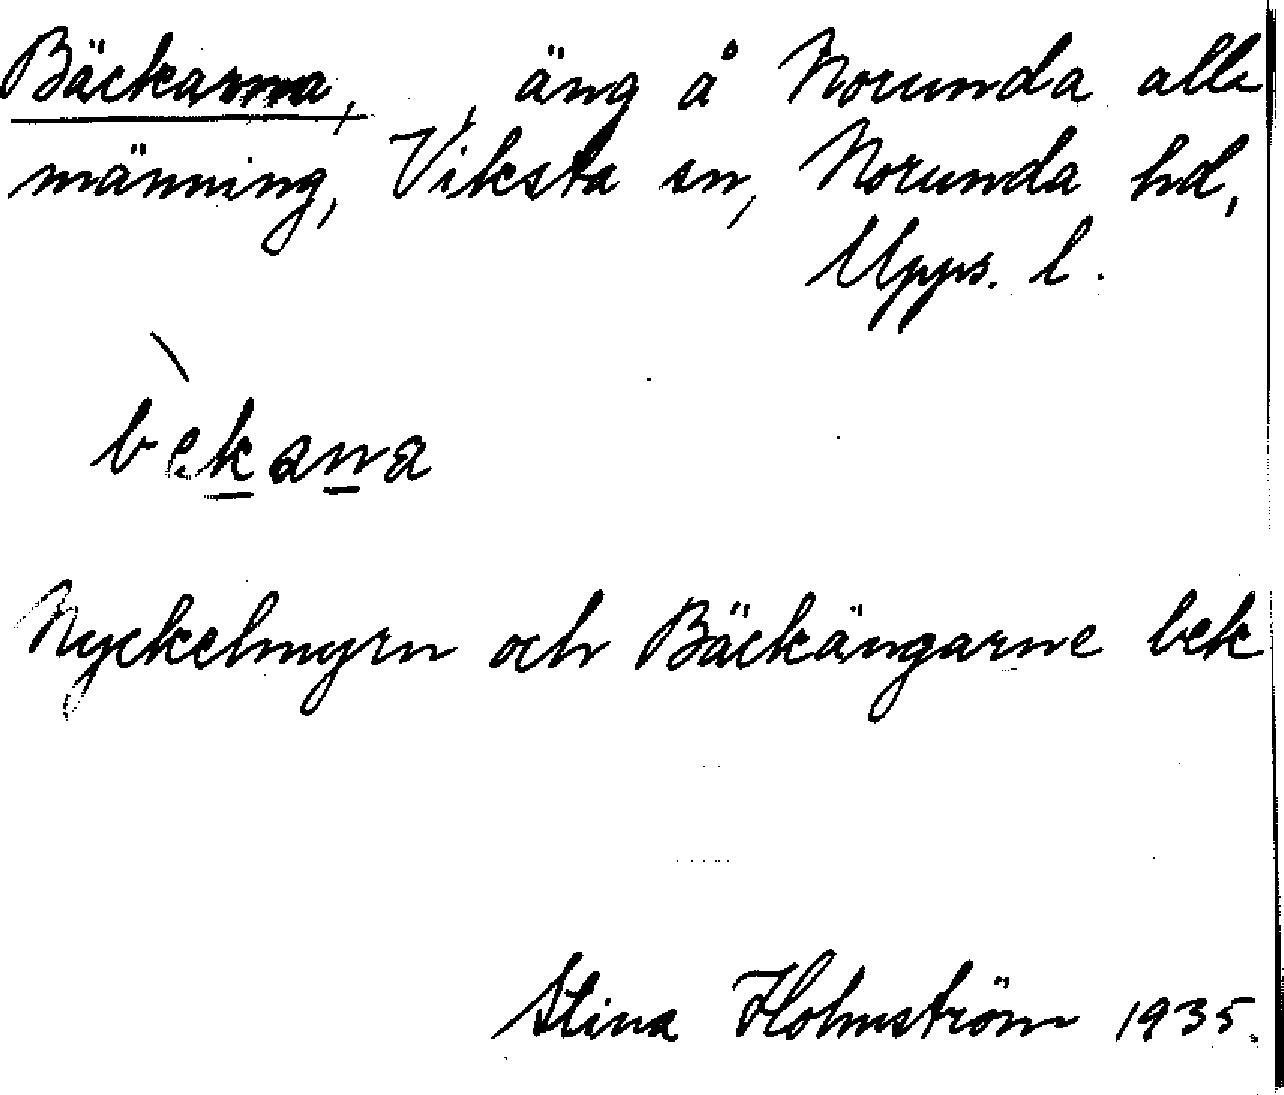 Bäckarna, , äng å Norunda allm
männing, Viksta sn, Norunda hd,
Upps. l.
bèkana
Nyckelmyrn och Bäckängarne bek
Stina Holmström 1935.